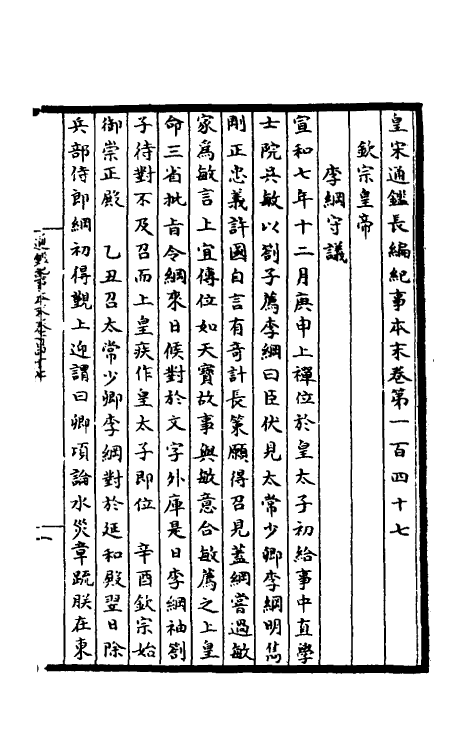 皇宋通鑑長編紀事本末卷第一百四十七
欽宗皇帝
李綱守議
宣和七年十二月庚申上禪位於皇太子初給事中直學
士院吳敏以劄子薦李綱曰臣伏見太常少卿李綱明雋
剛正忠義許國自言有奇計長策願得召見蓋綱嘗過敏
家為敏言上宜傳位如天寶故事與敏意合敏薦之上皇
命三省批旨令綱來日候對於文字外庫是日李綱袖劄
子待對不及召而上皇疾作皇太子即位 辛酉欽宗始
御崇正殿 乙丑召太常少卿李綱對於延和殿翌日除
兵部侍郎綱初得覲上迎謂曰卿頃論水災章疏朕在東